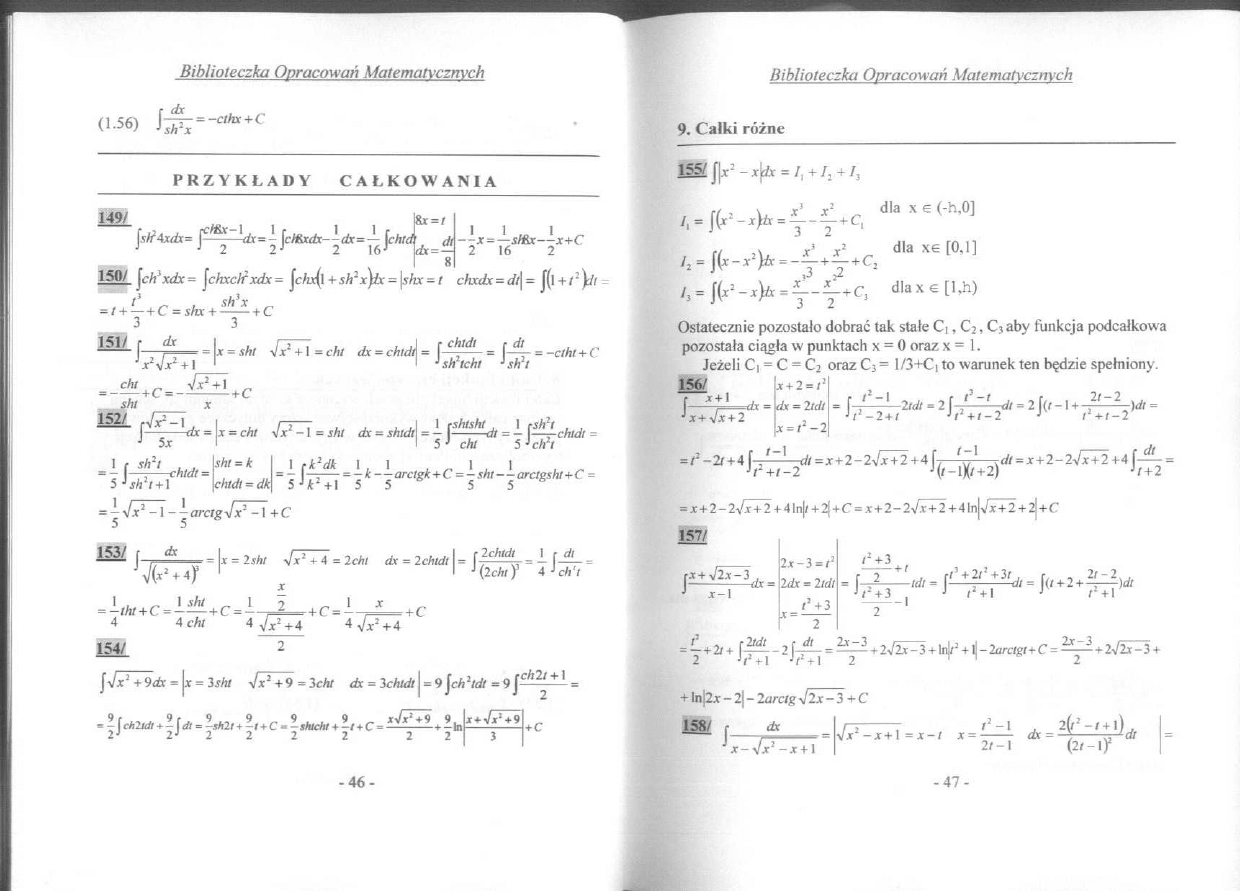 Biblioteczka Opracowań Matematycznych
(1.56) ∫dx/sh²x = -cthx + C
PRZYKŁADY CAŁKOWANIA
149/
∫sh²4xdx = ∫(ch8x-1)/2 dx = 1/2 ∫ch8xdx - 1/2 dx = 1/16 ∫chtdt |8x = t dx = dt/8| - 1/2 x = 1/16 sh8x - 1/2 x + C
150/ ∫ch³xdx = ∫chxch²xdx = ∫chx(1 + sh²x)dx = |shx = t chxdx = dt| = ∫(1 + t²)dt =
= t + t³/3 + C = shx + sh³x/3 + C
151/ ∫dx/(x²√(x²+1)) = |x = sht √(x²+1) = cht dx = chtdt| = ∫chtdt/(sh²tcht) = ∫dt/sh²t = -ctht + C
= -cht/sht + C = -√(x²+1)/x + C
152/ ∫√(x²-1)/5x dx = |x = cht √(x²-1) = sht dx = shtdt| = 1/5 ∫shtsht/cht dt = 1/5 ∫sh²t/ch²t chtdt =
= 1/5 ∫sh²t/(sh²t+1) chtdt = |sht = k chtdt = dk| = 1/5 ∫k²dk/(k²+1) = 1/5 k - 1/5 arctgk + C = 1/5 sht - 1/5 arctgsht + C =
= 1/5 √(x²-1) - 1/5 arctg√(x²-1) + C
153/ ∫dx/√((x²+4)³) = |x = 2sht √(x²+4) = 2cht dx = 2chtdt| = ∫2chtdt/(2cht)³ = 1/4 ∫dt/ch²t =
= 1/4 tht + C = 1/4 sht/cht + C = 1/4 (x/2)/(√(x²+4)/2) + C = 1/4 x/√(x²+4) + C
154/
∫√(x²+9)dx = |x = 3sht √(x²+9) = 3cht dx = 3chtdt| = 9∫ch²tdt = 9∫(ch2t+1)/2 =
= 9/2 ∫ch2tdt + 9/2 ∫dt = 9/2 sh2t + 9/2 t + C = 9/2 shtcht + 9/2 t + C = x√(x²+9)/2 + 9/2 ln|(x+√(x²+9))/3| + C
- 46 -
Biblioteczka Opracowań Matematycznych
9. Całki różne
155/ ∫|x² - x|dx = I₁ + I₂ + I₃
I₁ = ∫(x² - x)dx = x³/3 - x²/2 + C₁ dla x ∈ (-h,0]
I₂ = ∫(x - x²)dx = -x³/3 + x²/2 + C₂ dla x∈ [0,1]
I₃ = ∫(x² - x)dx = x³/3 - x²/2 + C₃ dla x ∈ [1,h)
Ostatecznie pozostało dobrać tak stałe C₁, C₂, C₃ aby funkcja podcałkowa
pozostała ciągła w punktach x = 0 oraz x = 1.
Jeżeli C₁ = C = C₂ oraz C₃ = 1/3+C₁ to warunek ten będzie spełniony.
156/
∫(x+1)/(x+√(x+2)) dx = |x + 2 = t² dx = 2tdt x = t² - 2| = ∫(t²-1)/(t²-2+t) 2tdt = 2∫(t³-t)/(t²+t-2) dt = 2∫(t - 1 + (2t-2)/(t²+t-2))dt =
= t² - 2t + 4∫(t-1)/(t²+t-2) dt = x + 2 - 2√(x+2) + 4∫(t-1)/((t-1)(t+2)) dt = x + 2 - 2√(x+2) + 4∫dt/(t+2) =
= x + 2 - 2√(x+2) + 4ln|t + 2| + C = x + 2 - 2√(x+2) + 4ln|√(x+2) + 2| + C
157/
∫(x+√(2x-3))/(x-1) dx = |2x - 3 = t² 2dx = 2tdt x = (t²+3)/2| = ∫((t²+3)/2 + t)/((t²+3)/2 - 1) tdt = ∫(t³+2t²+3t)/(t²+1) dt = ∫(t + 2 + (2t-2)/(t²+1))dt
= t²/2 + 2t + ∫2tdt/(t²+1) - 2∫dt/(t²+1) = (2x-3)/2 + 2√(2x-3) + ln|t² + 1| - 2arctgt + C = (2x-3)/2 + 2√(2x-3) +
+ ln|2x - 2| - 2arctg√(2x-3) + C
158/ ∫dx/(x-√(x²-x+1)) = |√(x²-x+1) = x - t x = (t²-1)/(2t-1) dx = 2(t²-t+1)/(2t-1)² dt| =
- 47 -